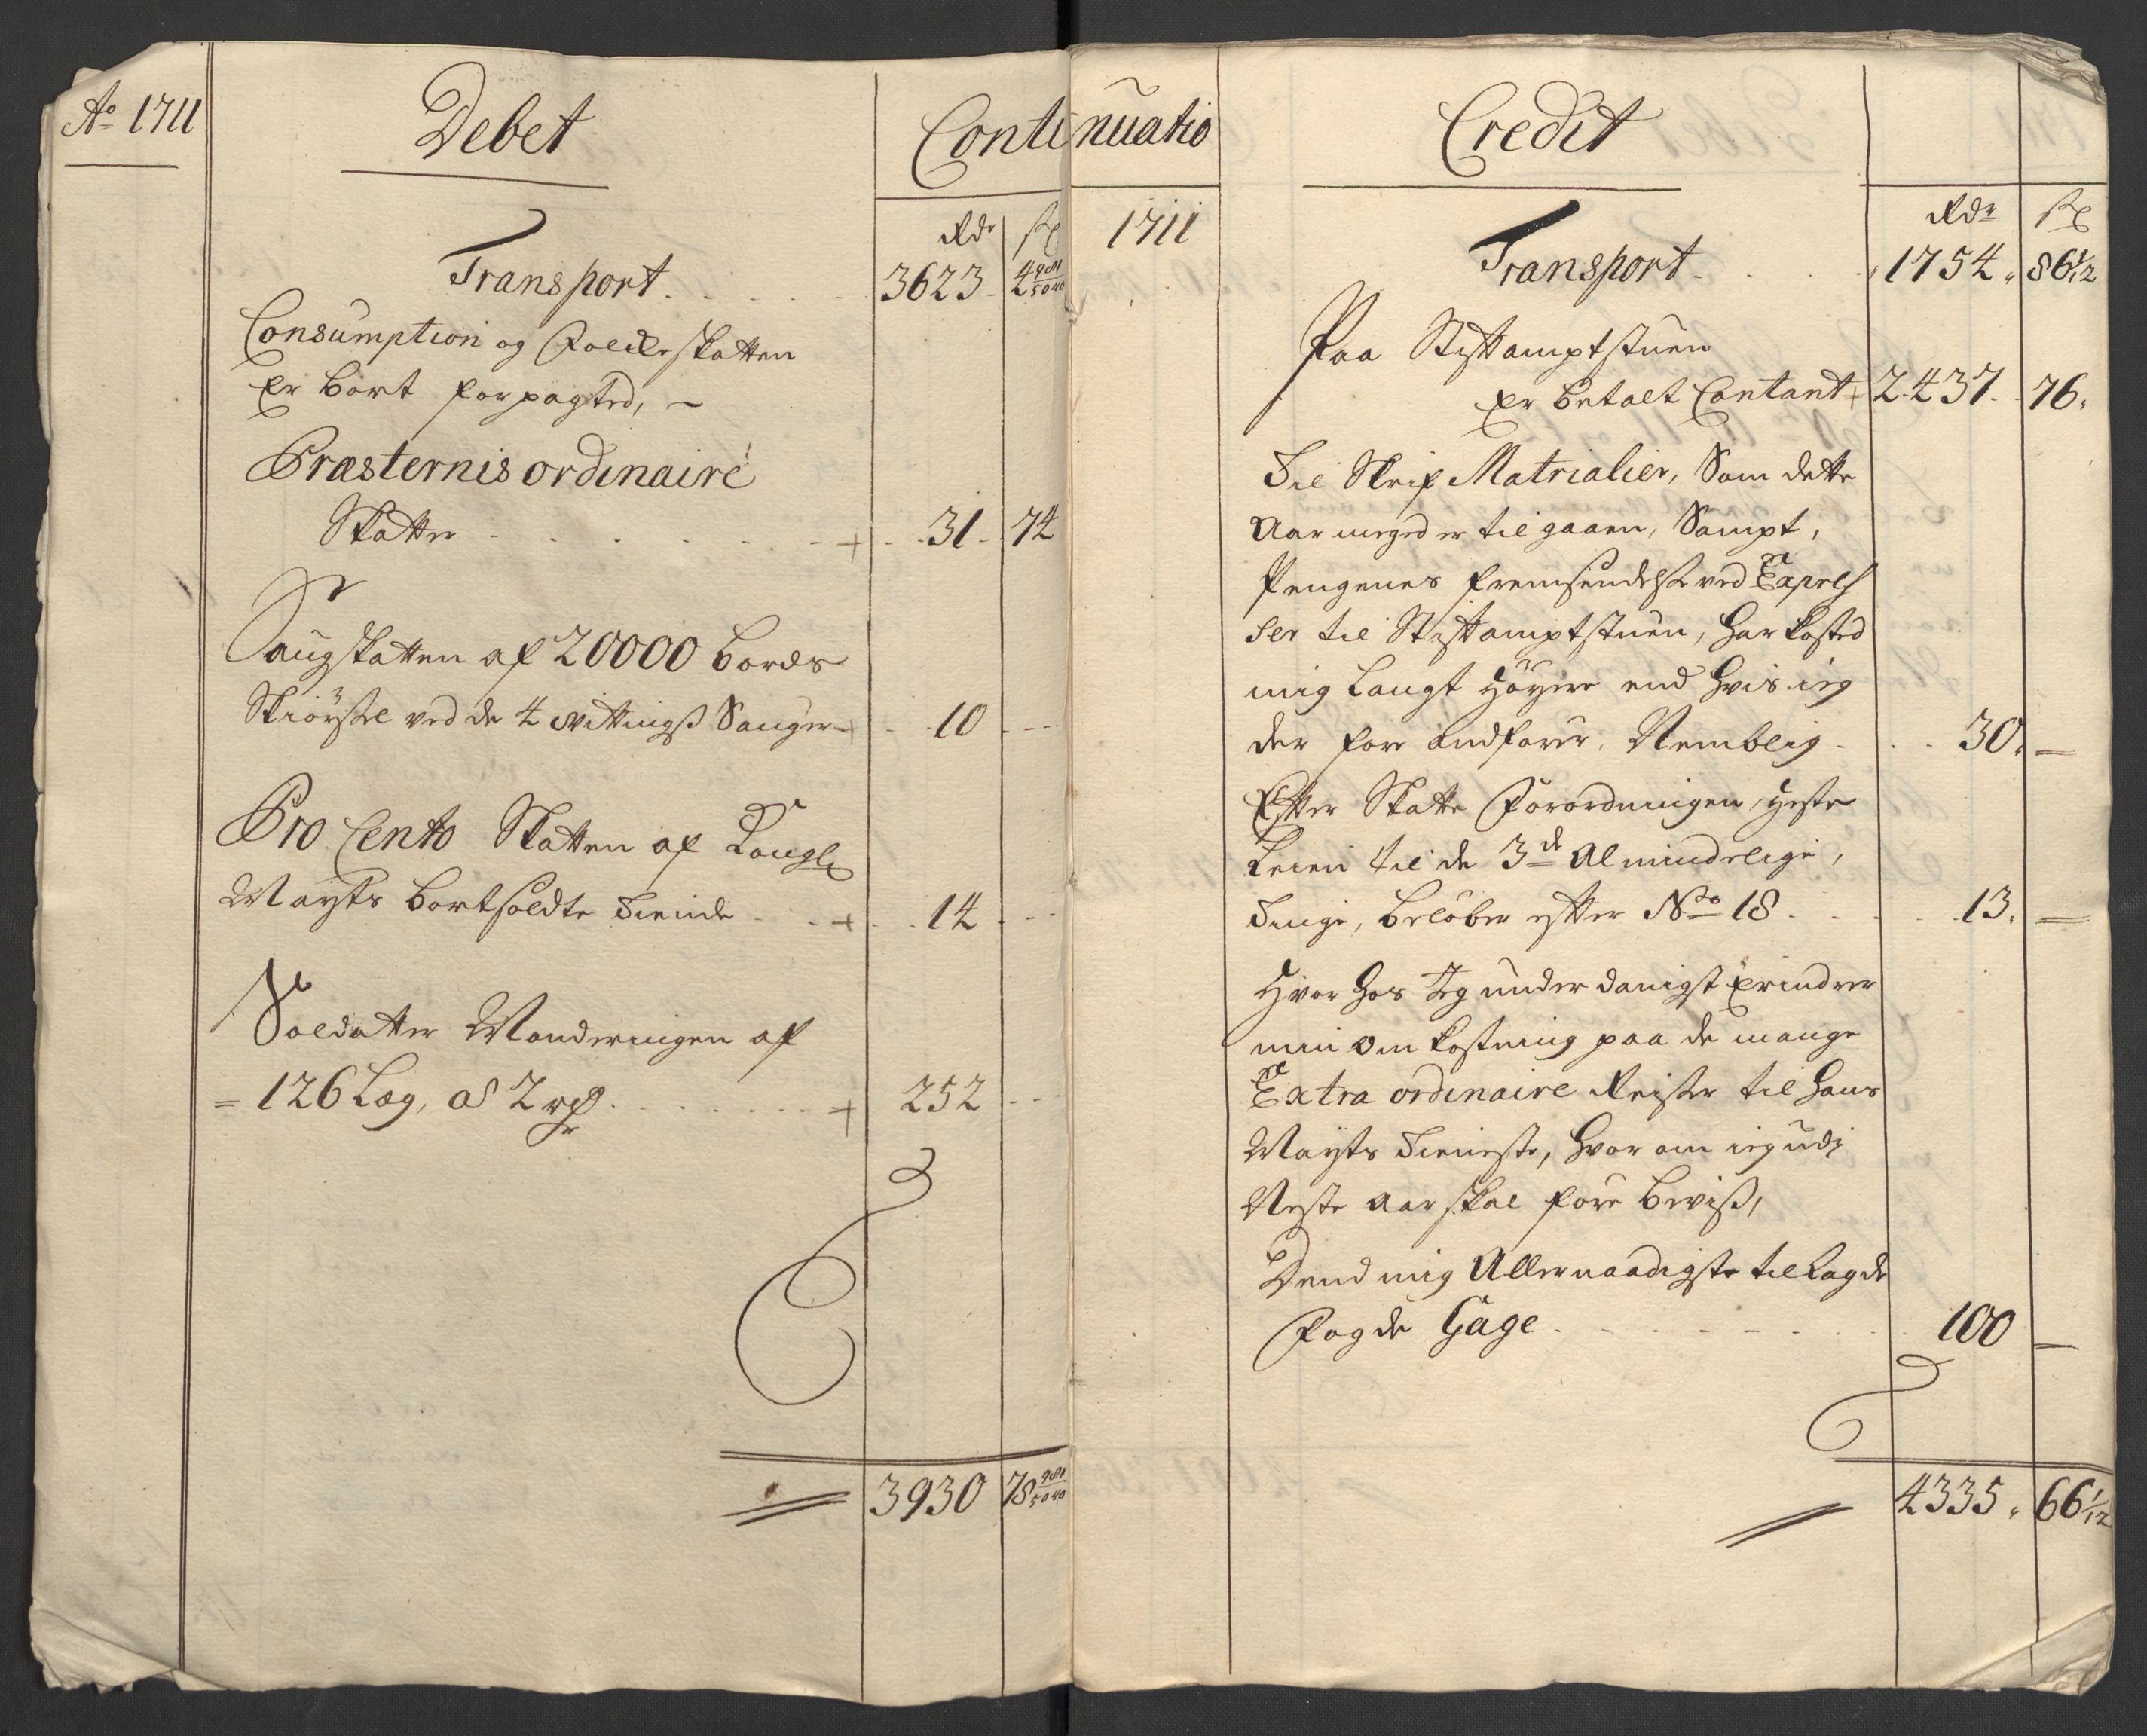 Ao 1711
Debet
Conti
Rdr ß
Transport . . . . . 3623 - 4 981/5040
Consumption og Folcke skatten
Er bort forpagted, -
Præsternis ordinaire
Skatter . . . . . + . . 31 - 74
Saugskatten af 20000 bords
Skiörsel ved de 4 Sauger + - 10 - - -
Pro Cento Skatten af Kongl
Mayts bortsoldte Tiende . . + . . 14 - - -
Soldatter Monderingen af
= 126 Læg, a 2 rd . . . . . + 252 - - -
3930 78 981/5040
nuatio
Credit
1711
Rdr ß
Transport . . . . 1754 . 86 1/12
Paa Stiftamptstuen
Er betalt Contant + 2437 - 76.
Til Skrif Matrialier, Som dette
Aar meged er til gaaen, Sampt,
Pengenes fremsendelse ved Expres
ser til Stiftamptstuen, har kosted
mig langt Höyere end hvis ieg
der fore andförer, Nemblig - . . 30. —
Efter Skatte Forordningen, Heste
Leien til de 3de Almindelige,
Tinge, belöber efter No 18 . . . . 13. —
Hvor hos Jeg underdanigst Erindrer
min omkostning paa de mange
Extra ordinaire Reiser til hans
Mayts Tieniste, hvor om ieg udj
Neste Aar skal före beviß,
Dend mig Allernaadigste tillagde
Fogde Gage . . . . . . 100 —
4335 . 66 1/12